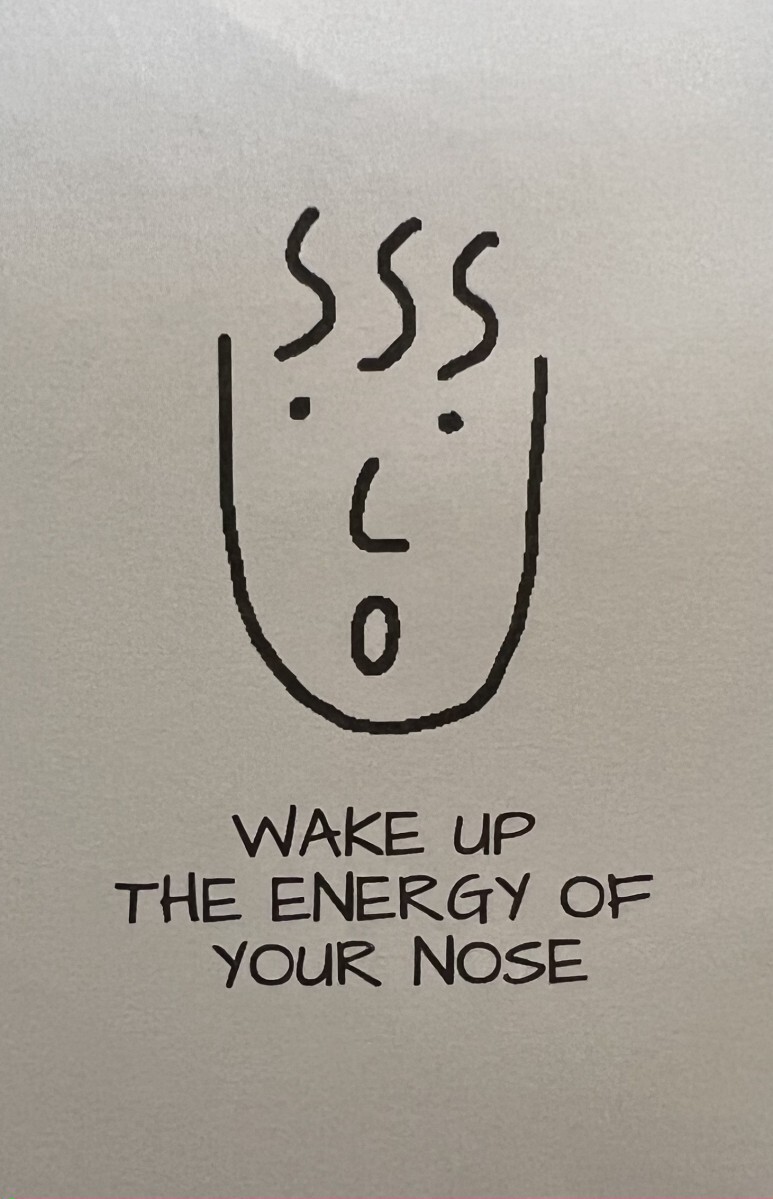 WAKE UP
THE ENERGY OF
YOUR NOSE